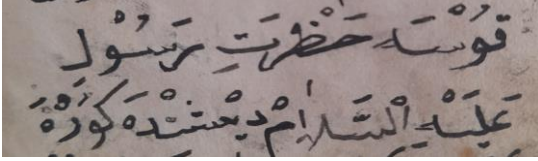 قوُسْه حَظْرَتِ رَسُوْلِ
عَلَيْهِ السَّلَامْ دِيْمَسْنْدَه كَوُرْدَهْ